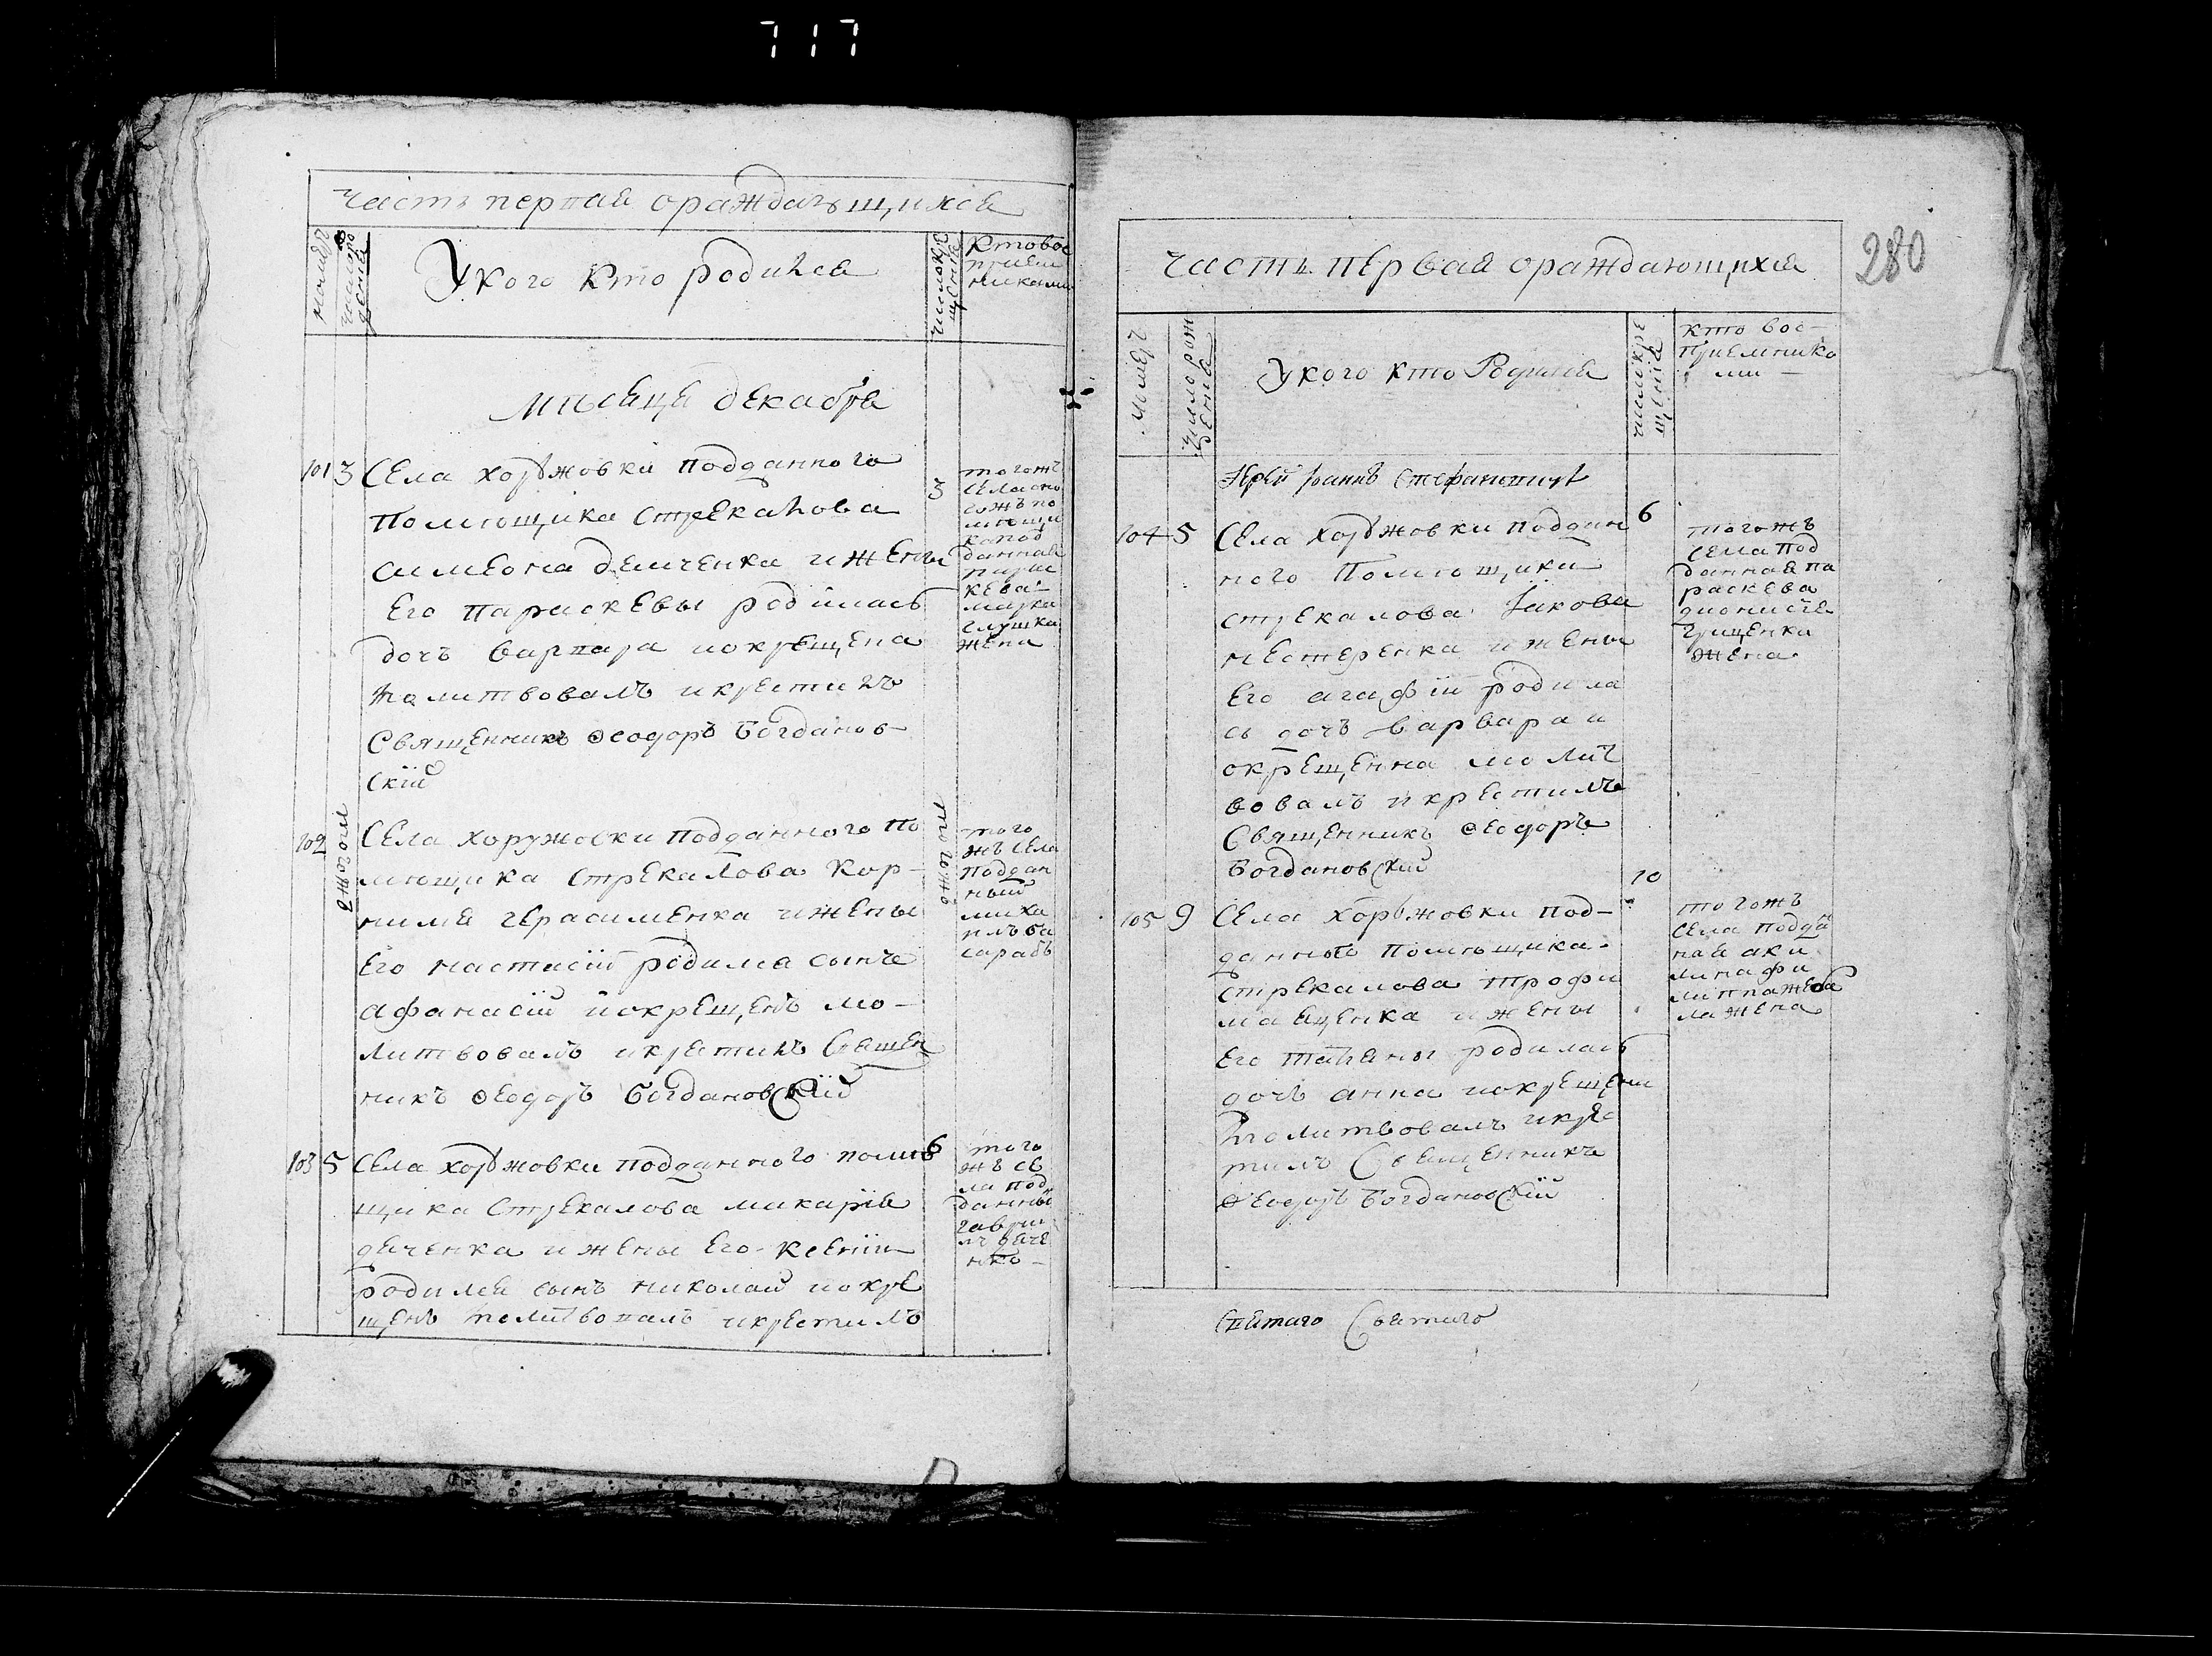 717
часть первая ораждающихся
номеръ
число рождения
У кого кто родился
число крещения
кто вос
прием
никами
мѣсяца декабря
101 3 Села хоружовки подданного
помѣщика стрекалова
симеона демченка и жены
его параскевы родилась
дочь варвара и окрещена
молитвовалъ и крестилъ
Священникъ Ѳеодоръ Богданов-
скій
3
тогожъ
села оно
гожъ по
мѣщи
ка под
данная
парас
кева
марка
глушка
жена
102 тогожъ Села хоружовки подданного по
мѣщика стрекалова Кор-
нилия герасименка и жены
его настасіи родился сынъ
афанасій и окрещенъ мо-
литвовалъ и крестилъ Священ
никъ Ѳеодоръ Богдановскій
тогожъ
того
жъ села
поддан
ный
миха
илъ ба
сарабъ
103 5 Села хоружовки подданного помѣ
щика Стрекалова макарія
дяченка и жены его ксеніи
родился сынъ николай и окре
щенъ молитвовалъ и крестилъ
6
того
жъ се
ла под
данный
гаври
лъ дяче
нко
280
часть первая ораждающихся
номеръ
число рож
дения
У кого кто Родился
число кре
щения
кто вос-
приемника
ми
Іерей Іоаннъ Стефановичъ
104 5 Села хоружовки поддан
ного помѣщика
стрекалова Іакова
нестеренка и жены
его агафіи родила
сь дочь варвара и
окрещенна молит
вовалъ и крестилъ
Священникъ Ѳеодоръ
Богдановскій
6
тогожъ
села под
данная па
раскева
дионисія
грищенка
жена
105 9 Села хоружовки под-
данного помѣщика
стрекалова трофи
ма яценка и жены
его татіаны родилась
дочь анна и окрещена
молитвовалъ и крес
тилъ Священникъ
Ѳеодоръ Богдановскій
10
тогожъ
села подда
ная аки
лина фи
липпа
жена
Святаго